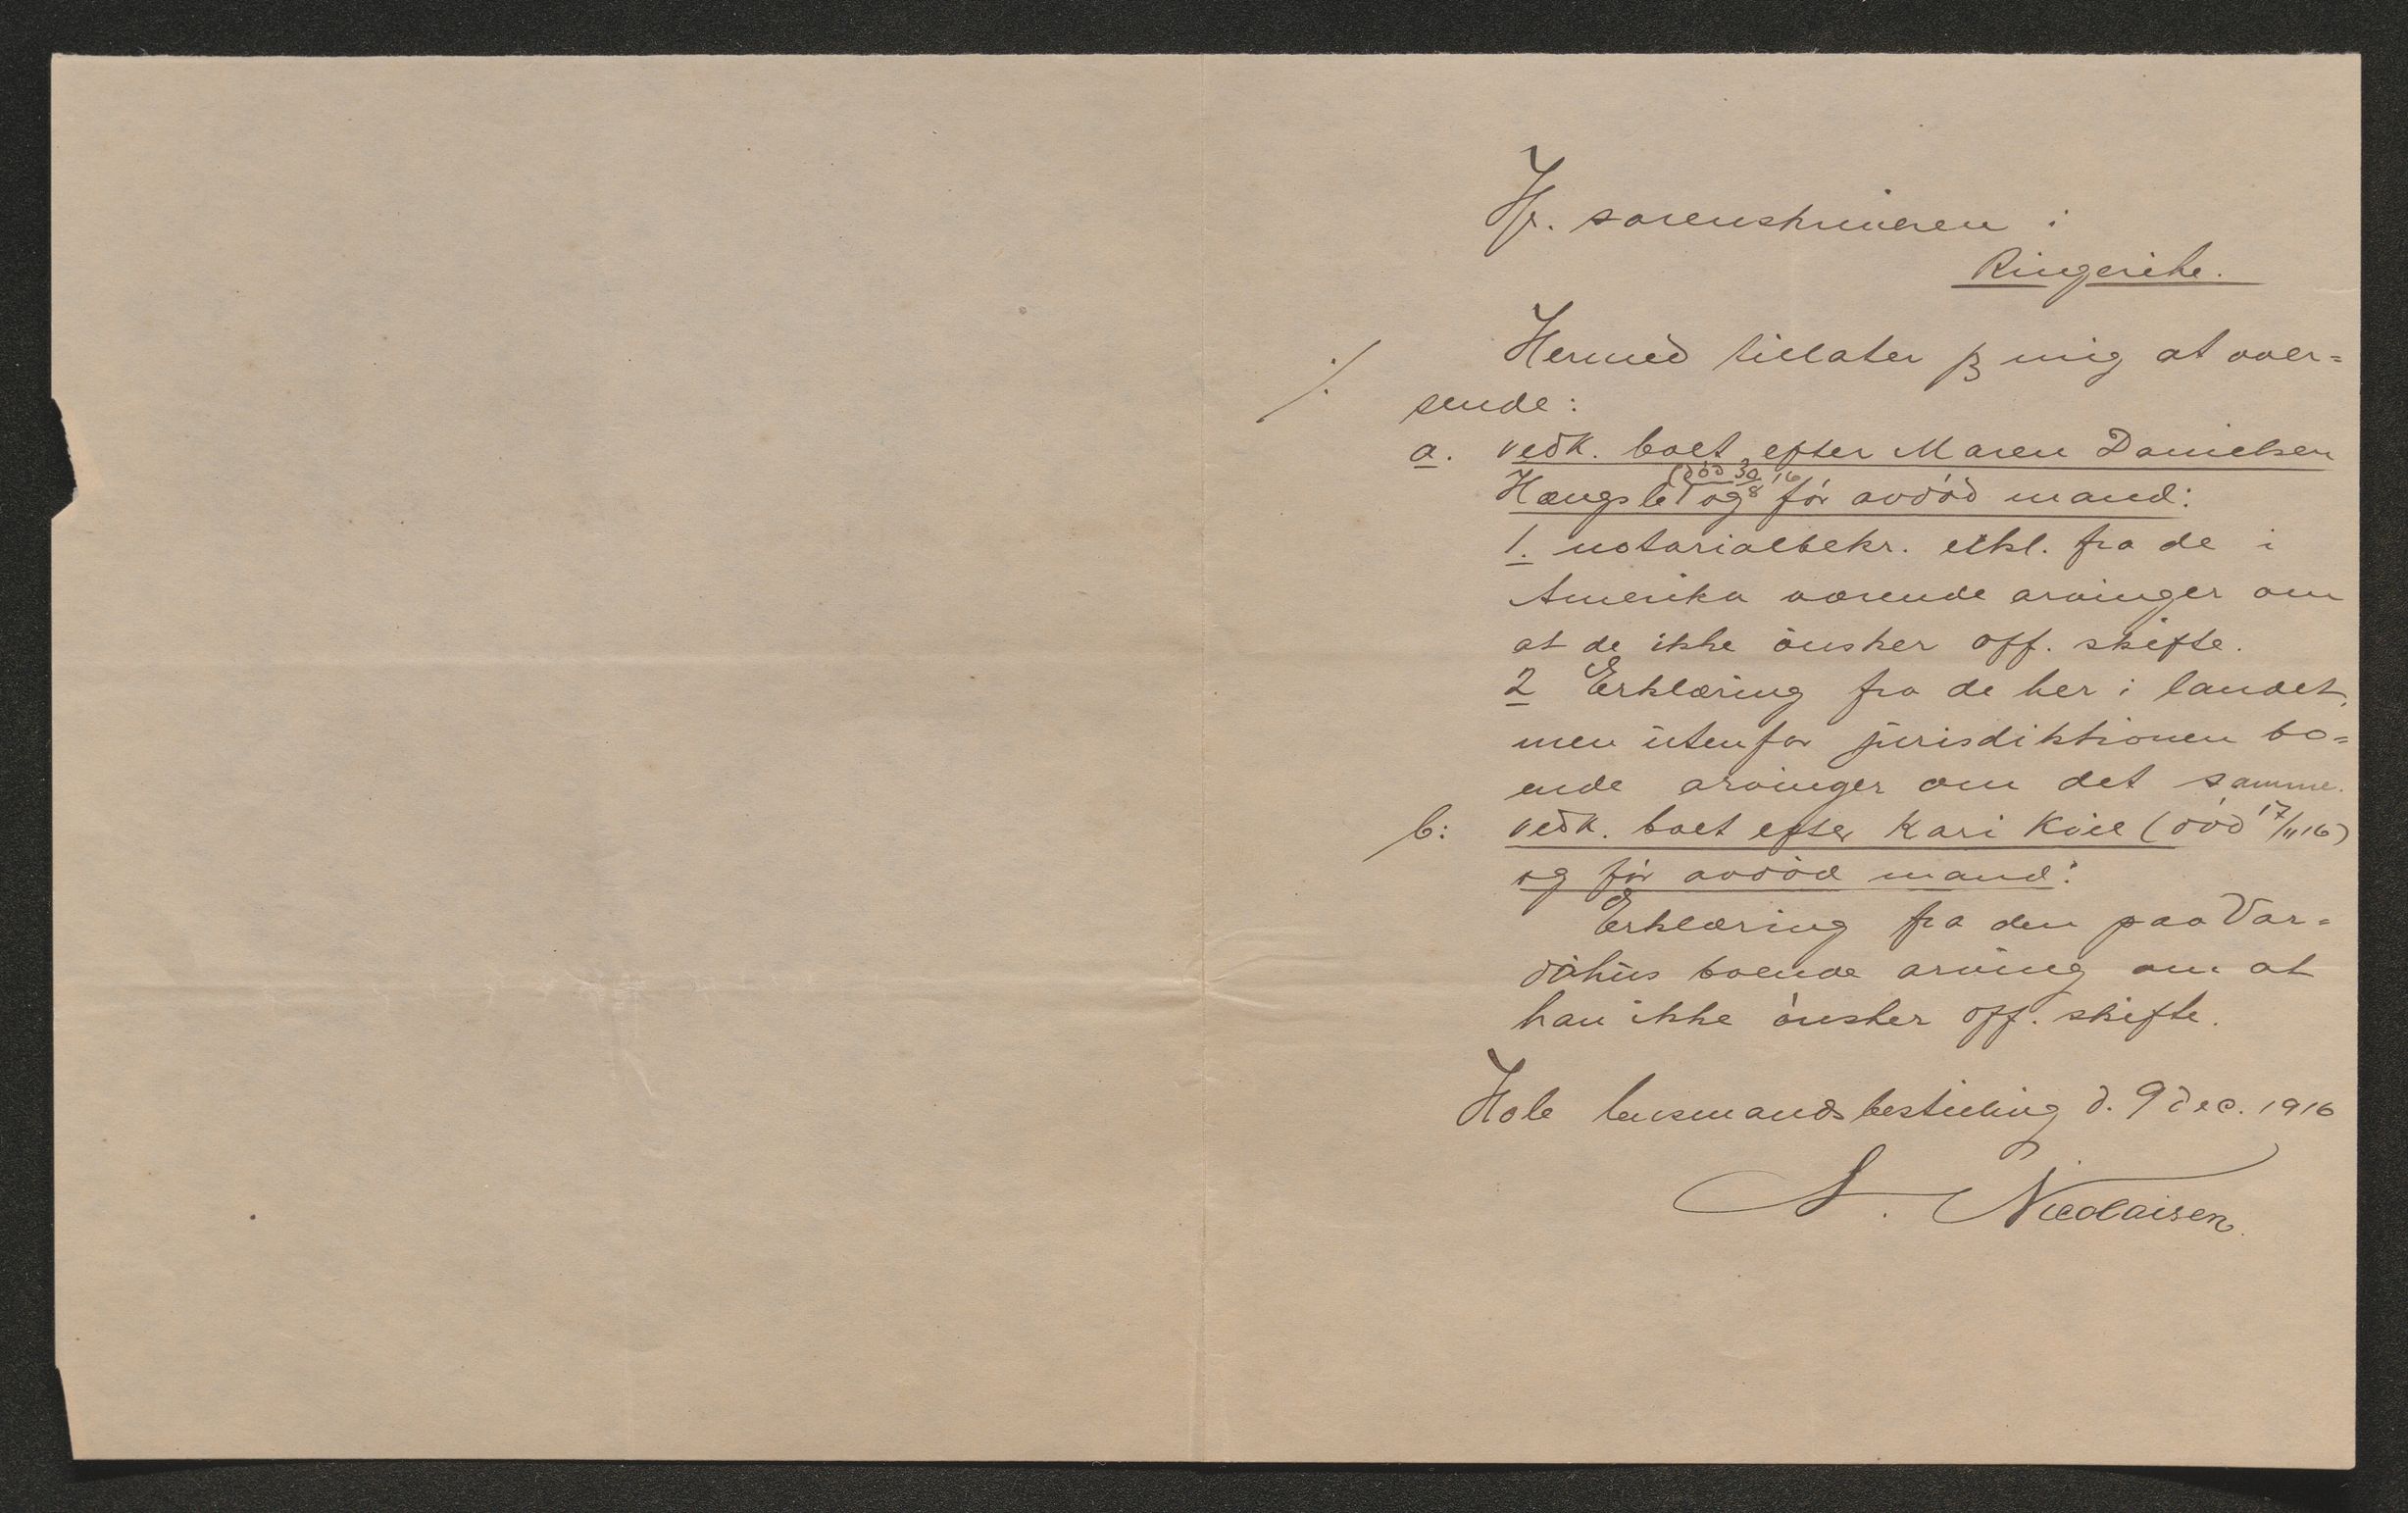 Hr. sorenskriveren i
Ringerike.
Hermed tillater jeg mig at over=
./. sende:
a. vedk. boet efter Maren Danielsen
(död 30/8 16)
Hængsle og för avdöd mand:
1. notarialbekr. erkl. fra de i
Amerika værende arvinger om
at de ikke önsker off. skifte.
2 Erklæring fra de her i landet,
men utenfor jurisdiktionen bo=
ende arvinger om det samme.
b: vedk. boet efter Kari (död 17/11 16)
og för avdöd mand:
Erklæring fra den paa Var=
döhus boende arving om at
han ikke önsker off. skifte.
Hole lensmandsbestilling d. 9 dec. 1916
Nicolaisen.